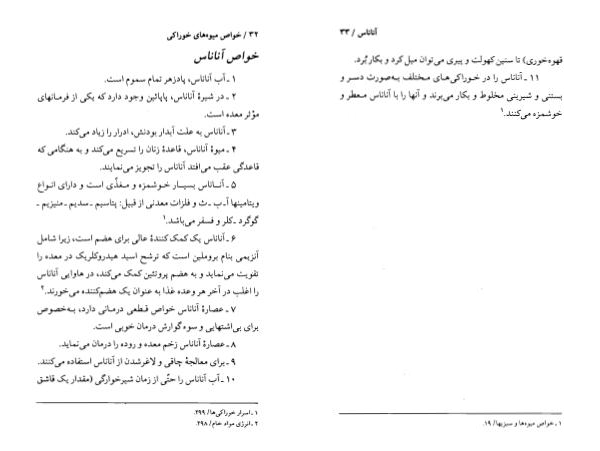 ۳۲ / خواص میوه‌های خوراکی
خواص آناناس
۱ ـ آب آناناس، پادزهر تمام سموم است.
۲ ـ در شیرهٔ آناناس، پاپائین وجود دارد که یکی از فرمانهای
مؤثر معده است.
۳ ـ آناناس به علت آبدار بودنش، ادرار را زیاد می‌کند.
۴ ـ میوهٔ آناناس، قاعدهٔ زنان را تسریع می‌کند و به هنگامی که
قاعدگی عقب می‌افتد آناناس را تجویز می‌نمایند.
۵ ـ آناناس بسیار خوشمزه و مغذّی است و دارای انواع
ویتامینها آ ـ ب ـ ث و فلزات معدنی از قبیل: پتاسیم ـ سدیم ـ منیزیم ـ
گوگرد ـ کلر و فسفر می‌باشد.۱
۶ ـ آناناس یک کمک کنندهٔ عالی برای هضم است، زیرا شامل
آنزیمی بنام بروملین است که ترشح اسید هیدروکلریک در معده را
تقویت می‌نماید و به هضم پروتئین کمک می‌کند، در هاوایی آناناس
را اغلب در آخر هر وعده غذا به عنوان یک هضم‌کننده می‌خورند.۲
۷ ـ عصارهٔ آناناس خواص قطعی درمانی دارد، به‌خصوص
برای بی‌اشتهایی و سوء گوارش درمان خوبی است.
۸ ـ عصارهٔ آناناس زخم معده و روده را درمان می‌نماید.
۹ ـ برای معالجهٔ چاقی و لاغرشدن از آناناس استفاده می‌کنند.
۱۰ ـ آب آناناس را حتّی از زمان شیرخوارگی (مقدار یک قاشق
۱ ـ اسرار خوراکی‌ها/ ۲۹۹.
۲ ـ انرژی مواد خام/ ۲۹۸.
آناناس / ۳۳
قهوه‌خوری) تا سنین کهولت و پیری می‌توان میل کرد و بکار بُرد.
۱۱ ـ آناناس را در خوراکی‌های مختلف به‌صورت دسر و
بستنی و شیرینی مخلوط و بکار می‌برند و آنها را با آناناس معطر و
خوشمزه می‌کنند.۱
۱ ـ خواص میوه‌ها و سبزیها/ ۱۹.